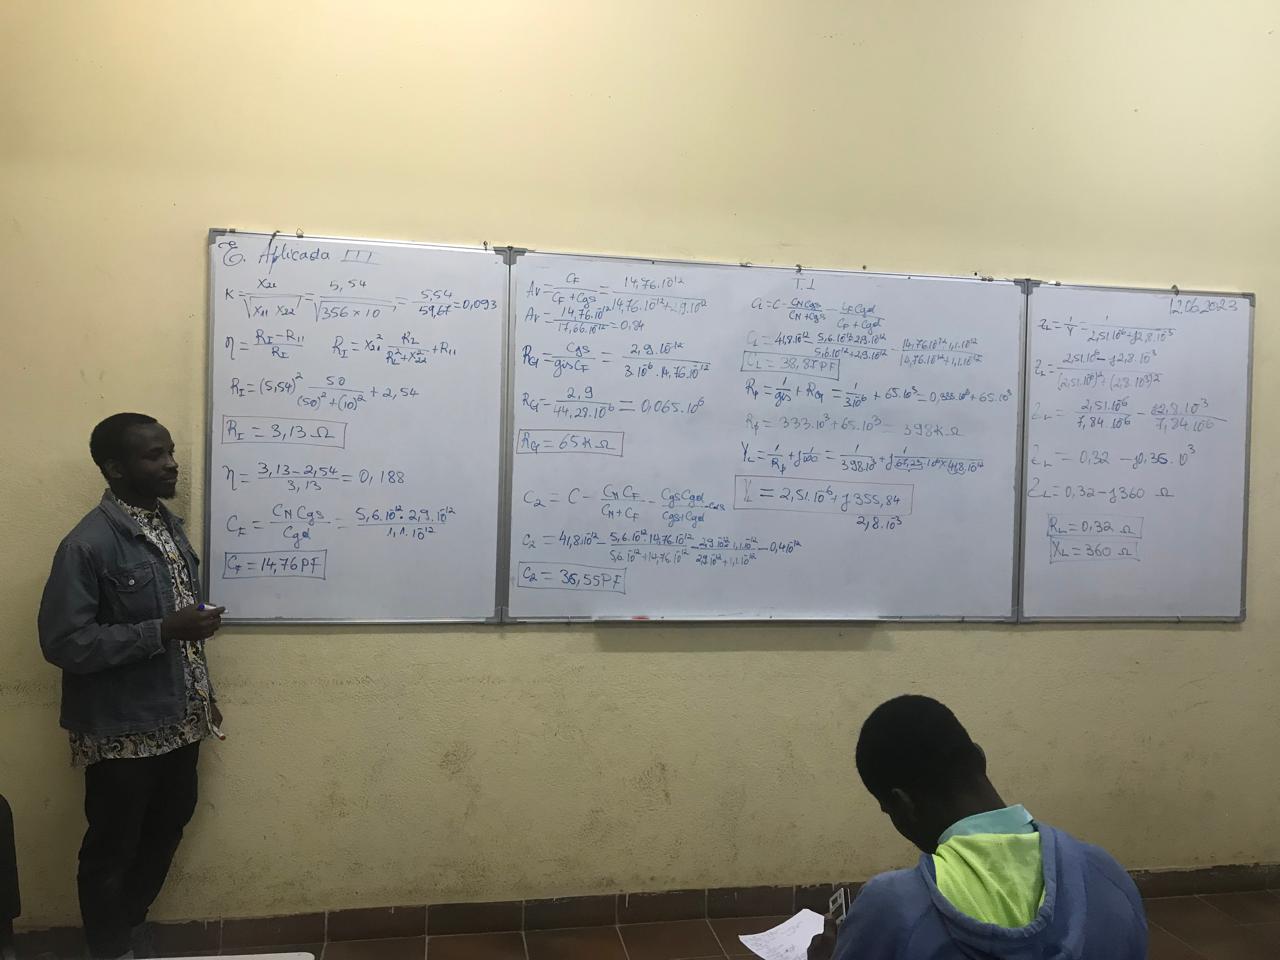 E. Aplicada III
K = X21 / √(X11 X22) = 5,54 / √(356 × 10) = 5,54 / 59,67 = 0,093
η = (RI − R11) / RI   RI = X21² RL / (RL² + X22²) + R11
RI = (5,54)² 50 / ((50)² + (10)²) + 2,54
RI = 3,13 Ω
η = (3,13 − 2,54) / 3,13 = 0,188
CF = CN Cgs / Cgd = 5,6.10⁻¹² . 2,9.10⁻¹² / 1,1.10⁻¹²
CF = 14,76PF
Av = CF / (CF + Cgs) = 14,76.10⁻¹² / (14,76.10⁻¹² + 2,9.10⁻¹²)
Av = 14,76.10⁻¹² / 17,66.10⁻¹² = 0,84
RG = Cgs / (gis CF) = 2,9.10⁻¹² / (3.10⁻⁶ . 14,76.10⁻¹²)
RG = 2,9 / 44,28.10⁻⁶ = 0,065.10⁶
RG = 65KΩ
C2 = C − CN CF / (CN + CF) − Cgs Cgd / (Cgs + Cgd) − Cds
C2 = 41,8.10⁻¹² − 5,6.10⁻¹² . 14,76.10⁻¹² / (5,6.10⁻¹² + 14,76.10⁻¹²) − 2,9.10⁻¹² . 1,1.10⁻¹² / (2,9.10⁻¹² + 1,1.10⁻¹²) − 0,4.10⁻¹²
C2 = 36,55PF
T.1
= C − CN Cgs / (CN + Cgs) − CF Cgd / (CF + Cgd)
= 41,8.10⁻¹² − 5,6.10⁻¹² . 2,9.10⁻¹² / (5,6.10⁻¹² + 2,9.10⁻¹²) − 14,76.10⁻¹² . 1,1.10⁻¹² / (14,76.10⁻¹² + 1,1.10⁻¹²)
= 38,87PF
Rp = 1 / gis + RG = 1 / 3.10⁻⁶ + 65.10³ = 0,333.10⁶ + 65.10³
Rp = 333.10³ + 65.10³ 398KΩ
YL = 1 / Rp + = 1 / 398.10³ + j
YL = 2,51.10⁻⁶ + j355,84
2,8.10⁻³
12.06.2023
ZL = 1 / Y = 1 / (2,51.10⁻⁶ + j2,8.10⁻³)
ZL = (2,51.10⁻⁶ − j2,8.10⁻³) / ((2,51.10⁻⁶)² + (2,8.10⁻³)²)
ZL = 2,51.10⁻⁶ / 7,84.10⁻⁶ − j2,8.10⁻³ / 7,84.10⁻⁶
ZL = 0,32 − j0,36.10³
ZL = 0,32 − j360 Ω
RL = 0,32 Ω
XL = 360 Ω